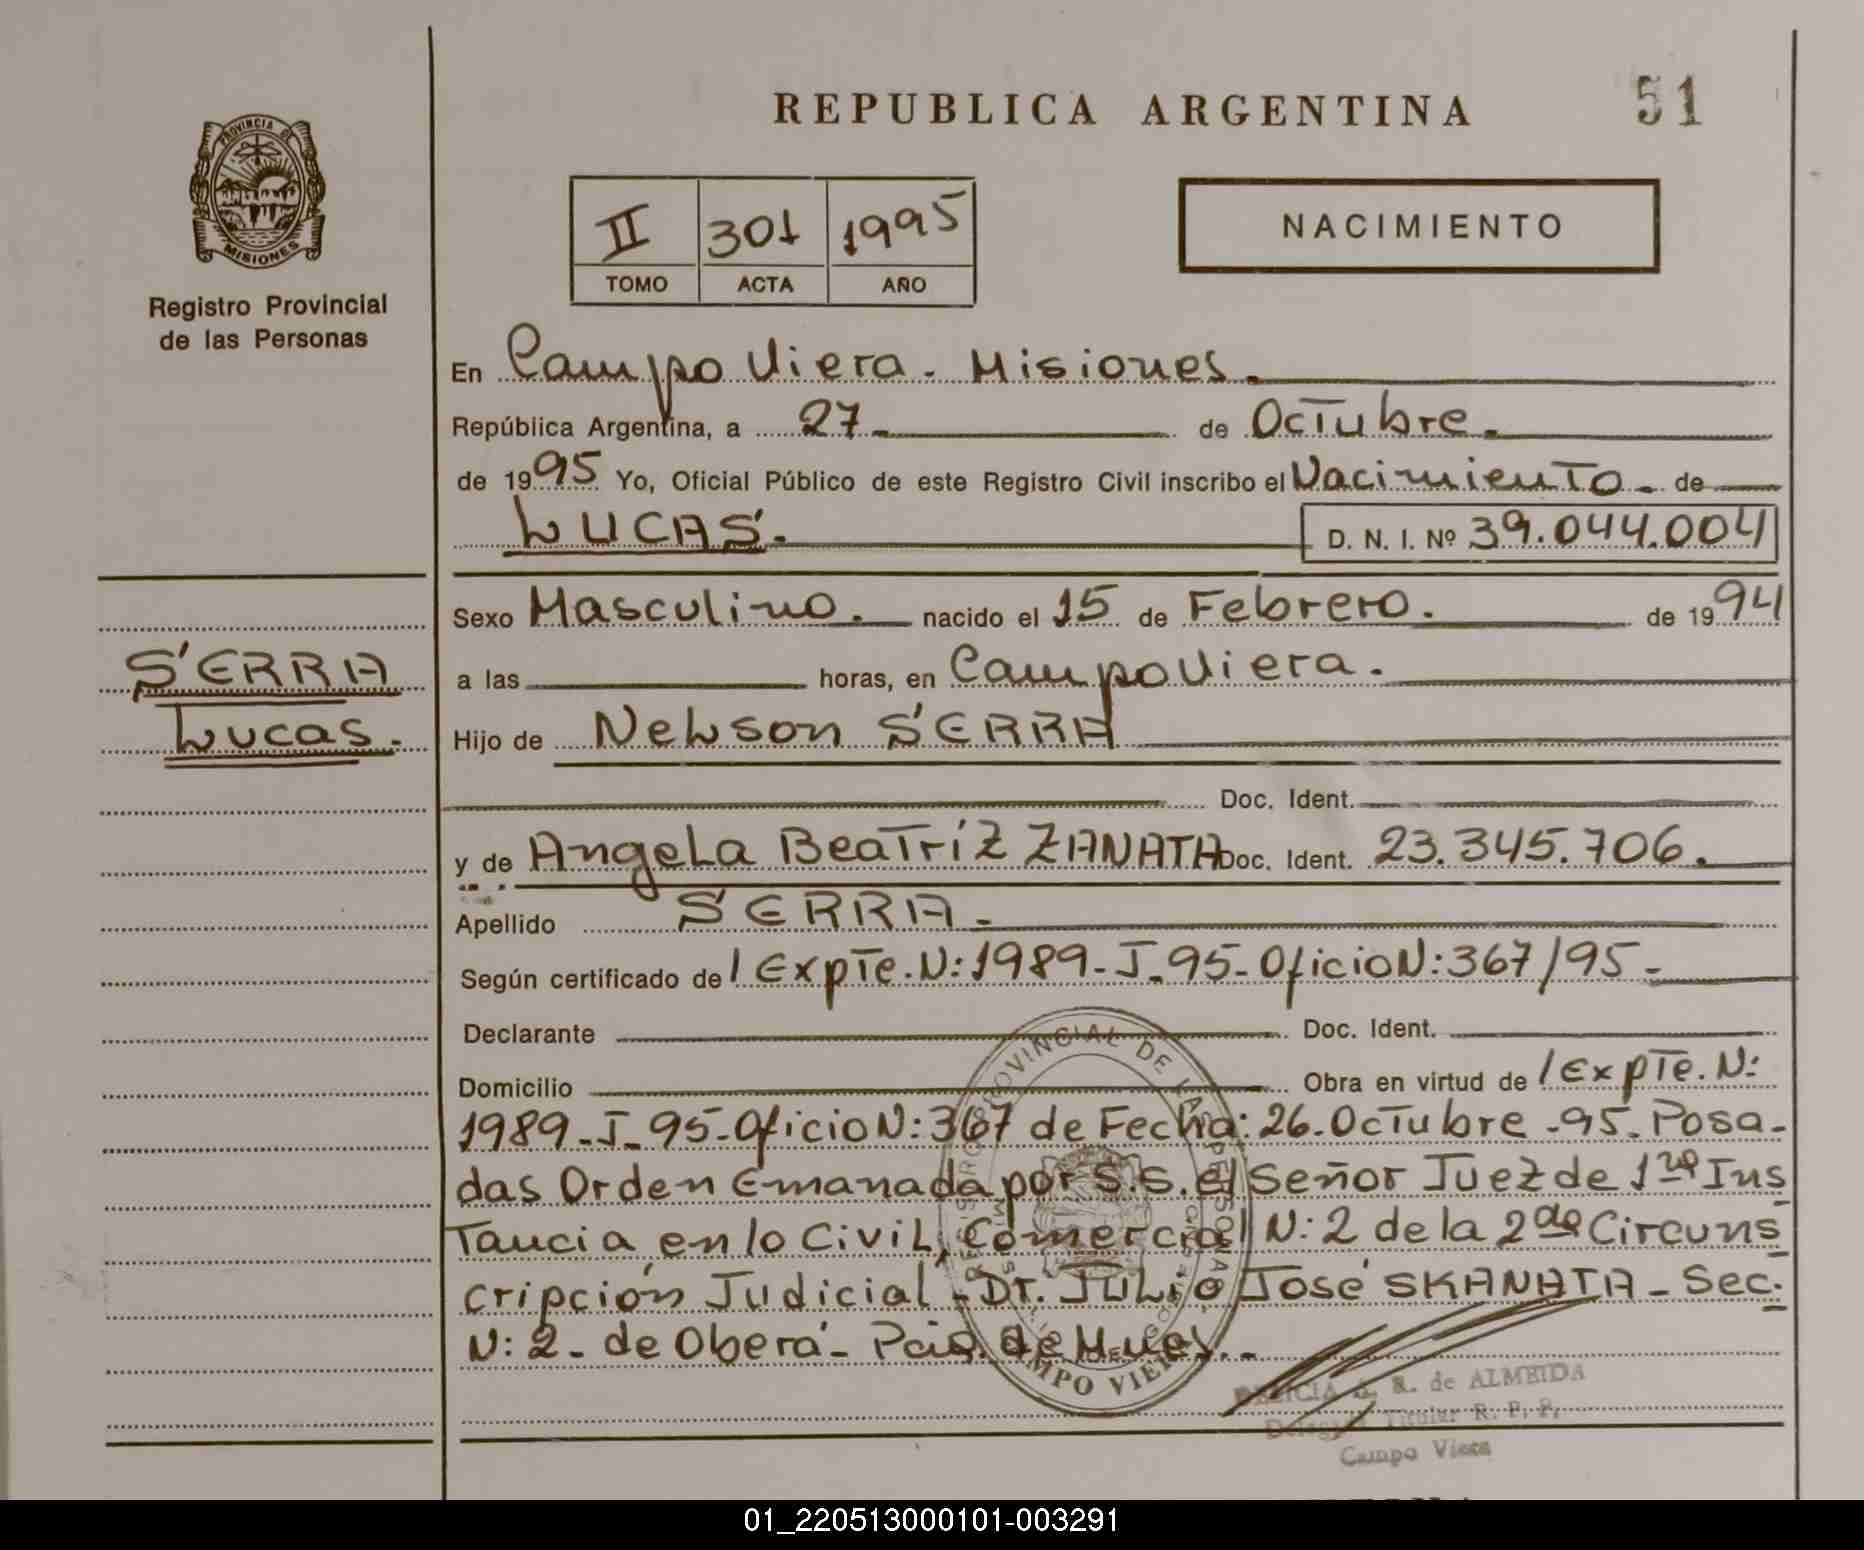 REPUBLICA ARGENTINA
51
PROVINCIA D
MISIONES
Registro Provincial
de las Personas
II 301 1995
TOMO ACTA AÑO
NACIMIENTO
En Campo Viera - Misiones.
República Argentina, a 27 - de Octubre.
de 1995 Yo, Oficial Público de este Registro Civil inscribo el Nacimiento - de
LUCAS. D. N. I. Nº 39.044.004
Sexo Masculino. nacido el 15 de Febrero. de 1994
SERRA
Lucas.
a las horas, en Campo Viera.
Hijo de Nelson SERRA
Doc. Ident.
y de Angela Beatríz ZANATA Doc. Ident. 23.345.706.
Apellido SERRA -
Según certificado de / Expte. N: 1989-J-95-Oficio N: 367/95-
Declarante Doc. Ident.
Domicilio Obra en virtud de / Expte. N:
1989-J-95-Oficio N: 367 de Fecha: 26-Octubre-95. Posa-
das Orden Emanada por S.S. el Señor Juez de 1ra Ins
tancia en lo Civil, Comercial N: 2 de la 2da Circuns
cripción Judicial - Dr. JULIO José SKANATA - Sec.
N: 2 - de Oberá -
PROVINCIAL DE LAS PERSONAS
CAMPO VIERA
A. R. de ALMEIDA
Titular R. P. P.
Campo Viera
01_220513000101-003291